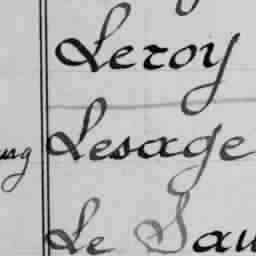 Leroy
Lesage
Le Sau